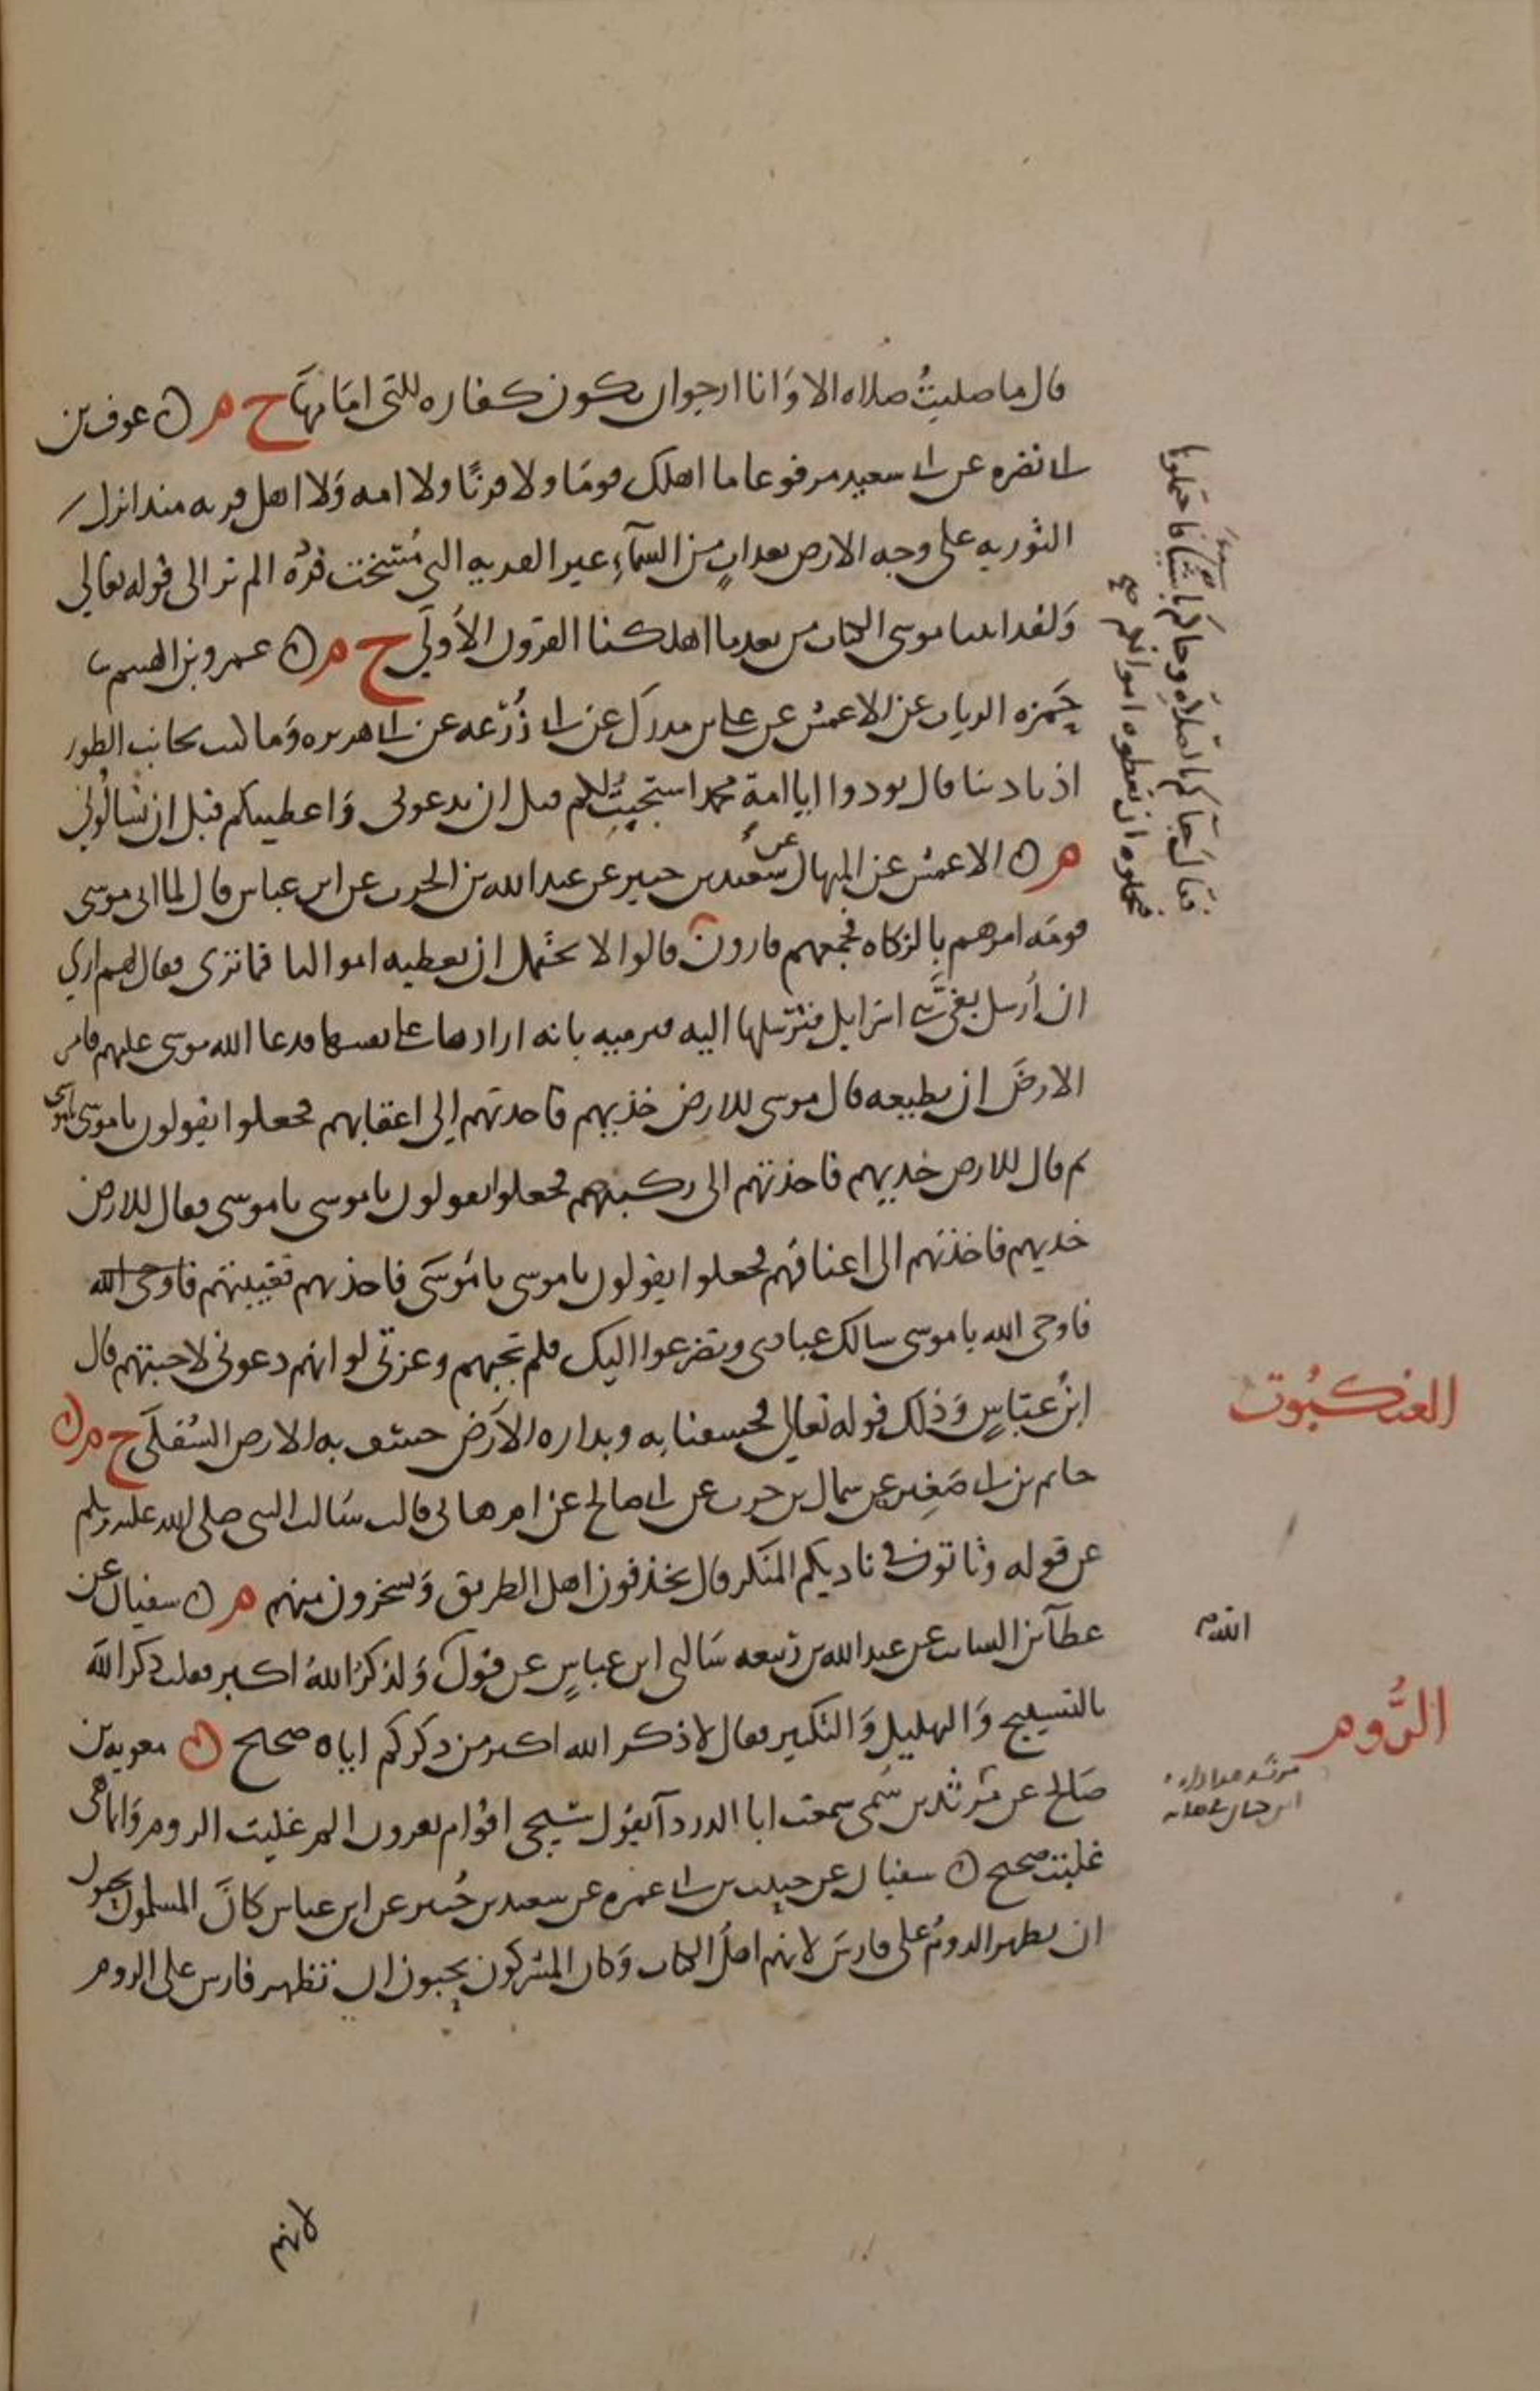 قال ما صليت صلاة الا وانا ارجوا ان تكون كفاره للتى امامها خ م ن عوف بن
ابى نضره عن ابى سعيد مرفوعا ما اهلك قوما ولا قرنا ولا امه ولا اهل قريه منذ انزل
التوريه على وجه الارض بعذاب من السماء غير القريه التى مسخت قرده الم تر الى قوله تعالى
ولقد اتينا موسى الكتاب من بعد ما اهلكنا القرون الاولى خ م ن عمرو بن الهيثم
حمزه الزيات عن الاعمش عن على بن مدرك عن ابى زرعه عن ابى هريره وما كنت بجانب الطور
اذ نادينا قال نودوا ايا امة محمد استجبت لكم قبل ان تدعونى واعطيتكم قبل ان تسالونى
م ن الاعمش عن المنهال عن سعيد بن جبير عن عبد الله بن الحرث عن ابن عباس قال لما اتى موسى
قومه امرهم بالزكاه فجمعهم قارون قالوا لا نحتمل ان نعطيه اموالنا فما ترى فقال لهم ارى
ان ارسل بغى بنى اسرايل فنرسلها اليه فترميه بانه ارادها على نفسها فدعا الله موسى عليهم فامر
الارض ان تطيعه قال موسى للارض خذيهم فاخذتهم الى اعقابهم فجعلوا يقولون يا موسى يا موسى
ثم قال للارض خذيهم فاخذتهم الى ركبهم فجعلوا يقولون يا موسى يا موسى فقال للارض
خذيهم فاخذتهم الى اعناقهم فجعلوا يقولون يا موسى يا موسى فاخذتهم فغيبتهم فاوحى الله
فاوحى الله يا موسى سالك عبادى وتضرعوا اليك فلم تجبهم وعزتى لو انهم دعونى لاجبتهم قال
ابن عباس وذلك قوله تعالى فخسفنا به وبداره الارض خسف به الارض السفلى خ م ن
حاتم بن ابى صغيره عن سماك بن حرب عن ابى صالح عن ام هانى قالت سالت النبى صلى الله عليه وسلم
عن قوله وتاتون فى ناديكم المنكر قال يخذفون اهل الطريق ويسخرون منهم م ن سفيان عن
عطا بن السايب عن عبد الله بن ربيعه سالنى ابن عباس عن قول ولذكر الله اكبر فقلت ذكر الله
بالتسبيح والتهليل والتكبير فقال لا ذكر الله اكبر من ذكركم اياه صحيح ن معويه بن
صالح عن مرثد بن سمى سمعت ابا الدردآ يقول سيجى اقوام يقرون الم غلبت الروم وانما هى
غلبت صحيح ن سفيان عن حبيب بن ابى عمره عن سعيد بن جبير عن ابن عباس كان المسلمون يحبون
ان يظهر الروم على فارس لانهم اهل الكتاب وكان المشركون يحبون ان تظهر فارس على الروم
لانهم
فقال جاكم بالصلاة وجاكم باشيا فاحتملوها
فتحملوه ان تعطوه اموالكم صح
العنكبوت
الروم